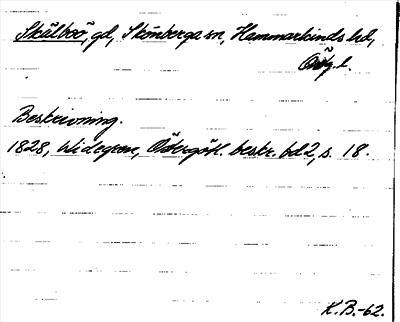 Skälboö, gd, Skönberga sn, Hammarkinds hd,
Östg. l.
Beskrivning.
1828, Widegren, Östergötl. beskr. bd 2, s. 18.
K.B.-62.